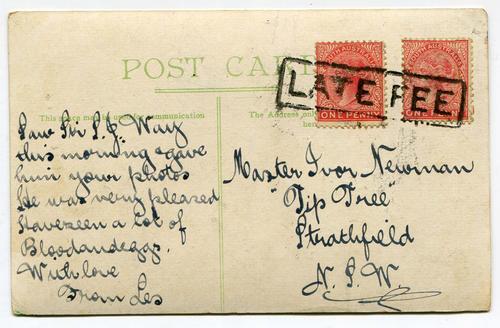 POST CARD
SOUTH AUSTRALIA
ONE PENNY
SOUTH AUSTRALIA
ONE PENNY
LATE FEE
This space may be used for communication
The Address only
here
Saw Sir S. J. Way
this morning & gave
him your photos
He was very pleased
Have seen a lot of
Bloodandeggz.
With love
From Les
Master Ivor Newman
"Tip Tree"
Strathfield
N. S. W.